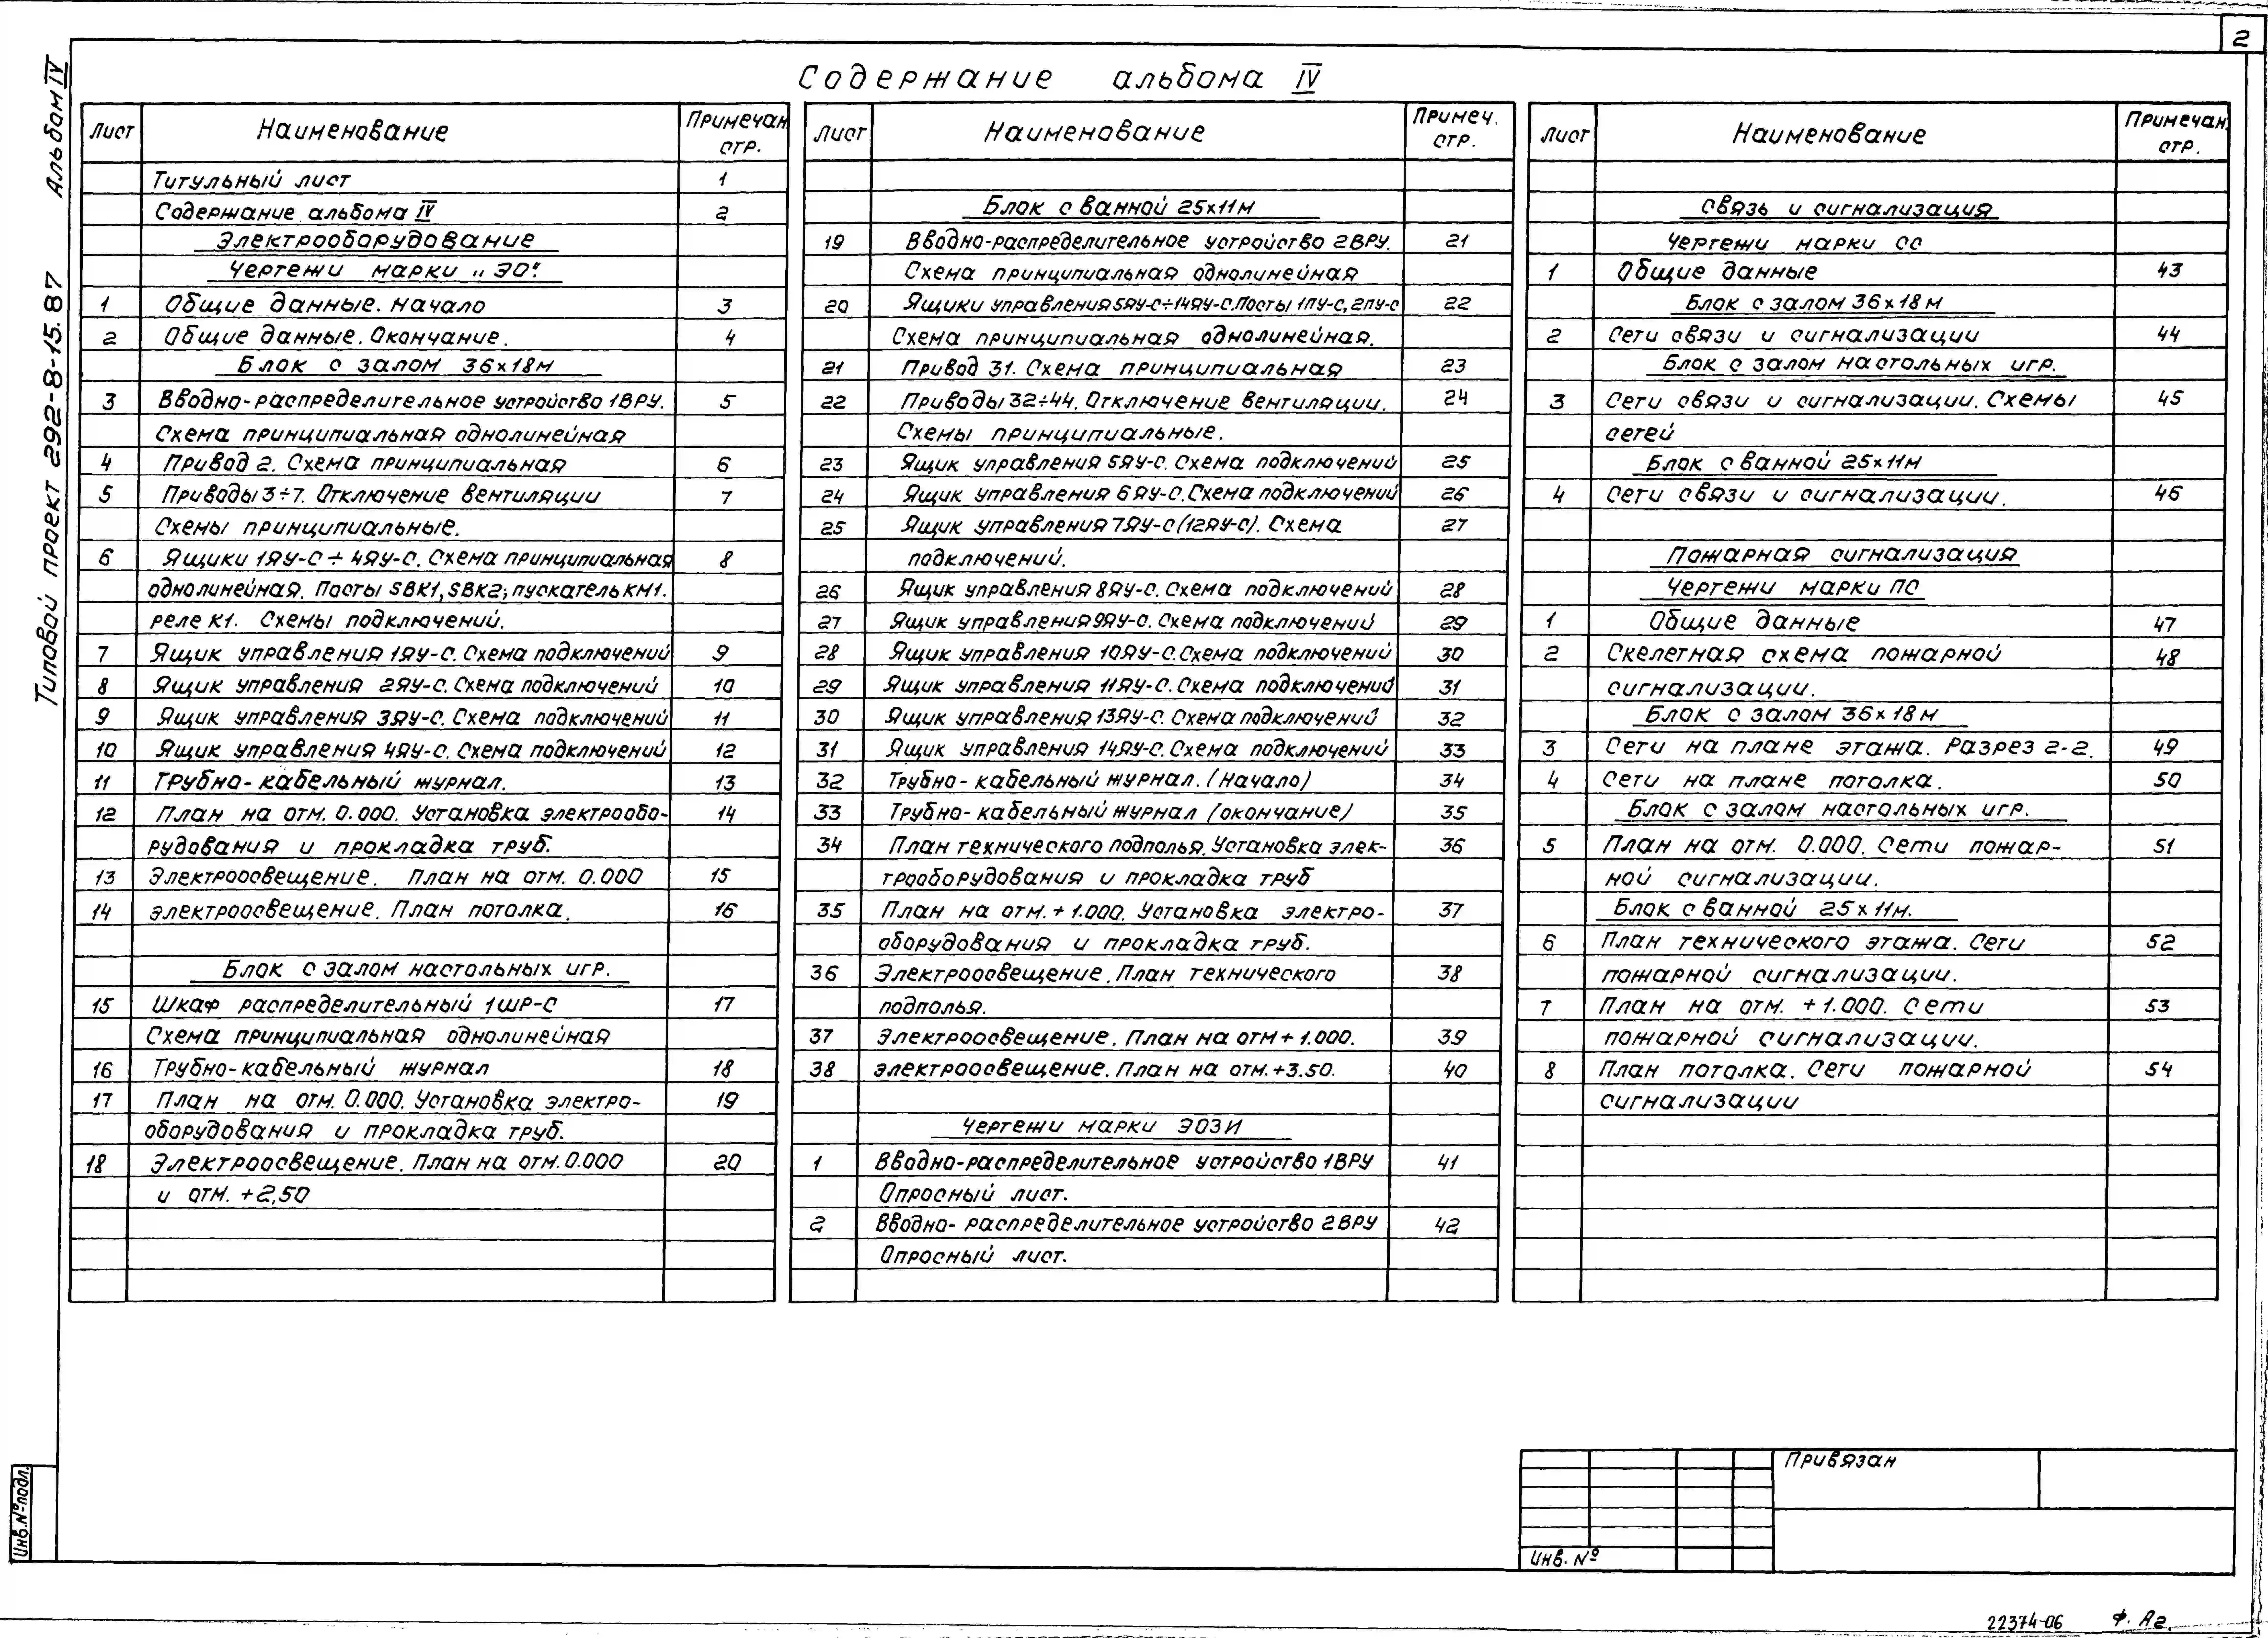 2
Содержание альбома IV
Типовой проект 292-8-15.87 Альбом IV
Лист Наименование Примечан. стр.
Титульный лист 1
Содержание альбома IV 2
Электрооборудование
Чертежи марки „ЭО"
1 Общие данные. Начало 3
2 Общие данные. Окончание. 4
Блок с залом 36х18м
3 Вводно-распределительное устройство 1ВРУ. 5
Схема принципиальная однолинейная
4 Привод 2. Схема принципиальная 6
5 Приводы 3÷7. Отключение вентиляции 7
Схемы принципиальные.
6 Ящики 1ЯУ-С ÷ 4ЯУ-С. Схема принципиальная 8
однолинейная. Посты SBK1, SBK2; пускатель КМ1.
реле К1. Схемы подключений.
7 Ящик управления 1ЯУ-С. Схема подключений 9
8 Ящик управления 2ЯУ-С. Схема подключений 10
9 Ящик управления 3ЯУ-С. Схема подключений 11
10 Ящик управления 4ЯУ-С. Схема подключений 12
11 Трубно-кабельный журнал. 13
12 План на отм. 0.000. Установка электрообо- 14
рудования и прокладка труб.
13 Электроосвещение. План на отм. 0.000 15
14 Электроосвещение. План потолка. 16
Блок с залом настольных игр.
15 Шкаф распределительный 1ШР-С 17
Схема принципиальная однолинейная
16 Трубно-кабельный журнал 18
17 План на отм. 0.000. Установка электро- 19
оборудования и прокладка труб.
18 Электроосвещение. План на отм. 0.000 20
и отм. +2,50
Лист Наименование Примеч. стр.
Блок с ванной 25х11м
19 Вводно-распределительное устройство 2ВРУ. 21
Схема принципиальная однолинейная
20 Ящики управления 5ЯУ-С÷14ЯУ-С. Посты 1ПУ-С, 2ПУ-С 22
Схема принципиальная однолинейная.
21 Привод 31. Схема принципиальная 23
22 Приводы 32÷44. Отключение вентиляции. 24
Схемы принципиальные.
23 Ящик управления 5ЯУ-С. Схема подключений 25
24 Ящик управления 6ЯУ-С. Схема подключений 26
25 Ящик управления 7ЯУ-С (12ЯУ-С). Схема 27
подключений.
26 Ящик управления 8ЯУ-С. Схема подключений 28
27 Ящик управления 9ЯУ-С. Схема подключений 29
28 Ящик управления 10ЯУ-С. Схема подключений 30
29 Ящик управления 11ЯУ-С. Схема подключений 31
30 Ящик управления 13ЯУ-С. Схема подключений 32
31 Ящик управления 14ЯУ-С. Схема подключений 33
32 Трубно-кабельный журнал. (Начало) 34
33 Трубно-кабельный журнал (окончание) 35
34 План технического подполья. Установка элек- 36
трооборудования и прокладка труб
35 План на отм. +1.000. Установка электро- 37
оборудования и прокладка труб.
36 Электроосвещение. План технического 38
подполья.
37 Электроосвещение. План на отм +1.000. 39
38 Электроосвещение. План на отм. +3.50. 40
Чертежи марки ЭОЗИ
1 Вводно-распределительное устройство 1ВРУ 41
Опросный лист.
2 Вводно-распределительное устройство 2ВРУ 42
Опросный лист.
Лист Наименование Примечан. стр.
Связь и сигнализация
Чертежи марки СС
1 Общие данные 43
Блок с залом 36х18м
2 Сети связи и сигнализации 44
Блок с залом настольных игр.
3 Сети связи и сигнализации. Схемы 45
сетей
Блок с ванной 25х11м
4 Сети связи и сигнализации. 46
Пожарная сигнализация
Чертежи марки ПС
1 Общие данные 47
2 Скелетная схема пожарной 48
сигнализации.
Блок с залом 36х18м
3 Сети на плане этажа. Разрез 2-2. 49
4 Сети на плане потолка. 50
Блок с залом настольных игр.
5 План на отм. 0.000. Сети пожар- 51
ной сигнализации.
Блок с ванной 25х11м.
6 План технического этажа. Сети 52
пожарной сигнализации.
7 План на отм. +1.000. Сети 53
пожарной сигнализации.
8 План потолка. Сети пожарной 54
сигнализации
Инв.№ подл.
Привязан
Инв. №
22374-06 Ф. А2.